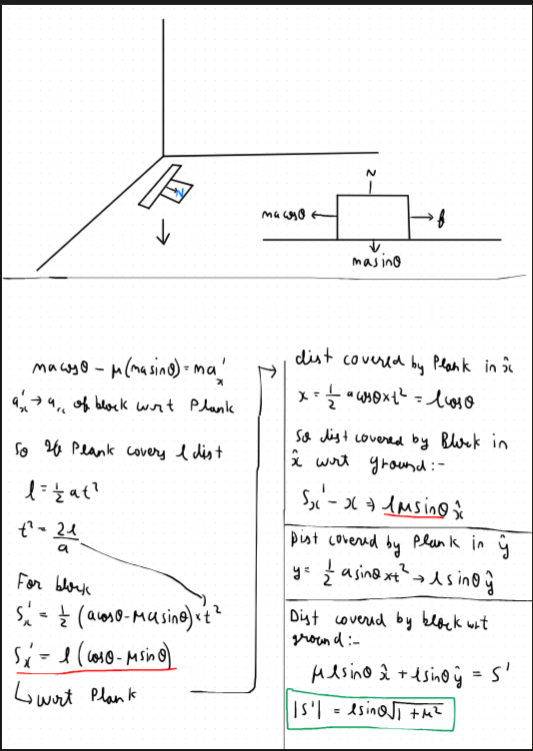 N
N
macosθ
f
masinθ
macosθ - μ(masinθ) = ma'x
a'x → a,, of block wrt Plank
So If Plank covers l dist
l = 1/2 at²
t² = 2l/a
For block
S'x = 1/2 (acosθ - μasinθ)×t²
Sx' = l (cosθ - μsinθ)
↳ wrt Plank
dist covered by Plank in x̂
x = 1/2 acosθ×t² = lcosθ
So dist covered by Block in
x̂ wrt ground:-
Sx' - x ⇒ lμsinθ x̂
Dist covered by Plank in ŷ
y = 1/2 asinθ×t² → lsinθ ŷ
Dist covered by block wrt
ground:-
μlsinθ x̂ + lsinθ ŷ = S'
|S'| = lsinθ√1+μ²